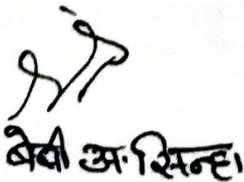 बेबी अ. सिन्हा